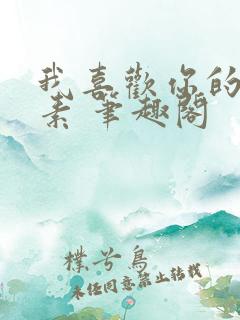 我喜歡你的
素 笔趣阁
樸兮鳥
未经同意禁止转载